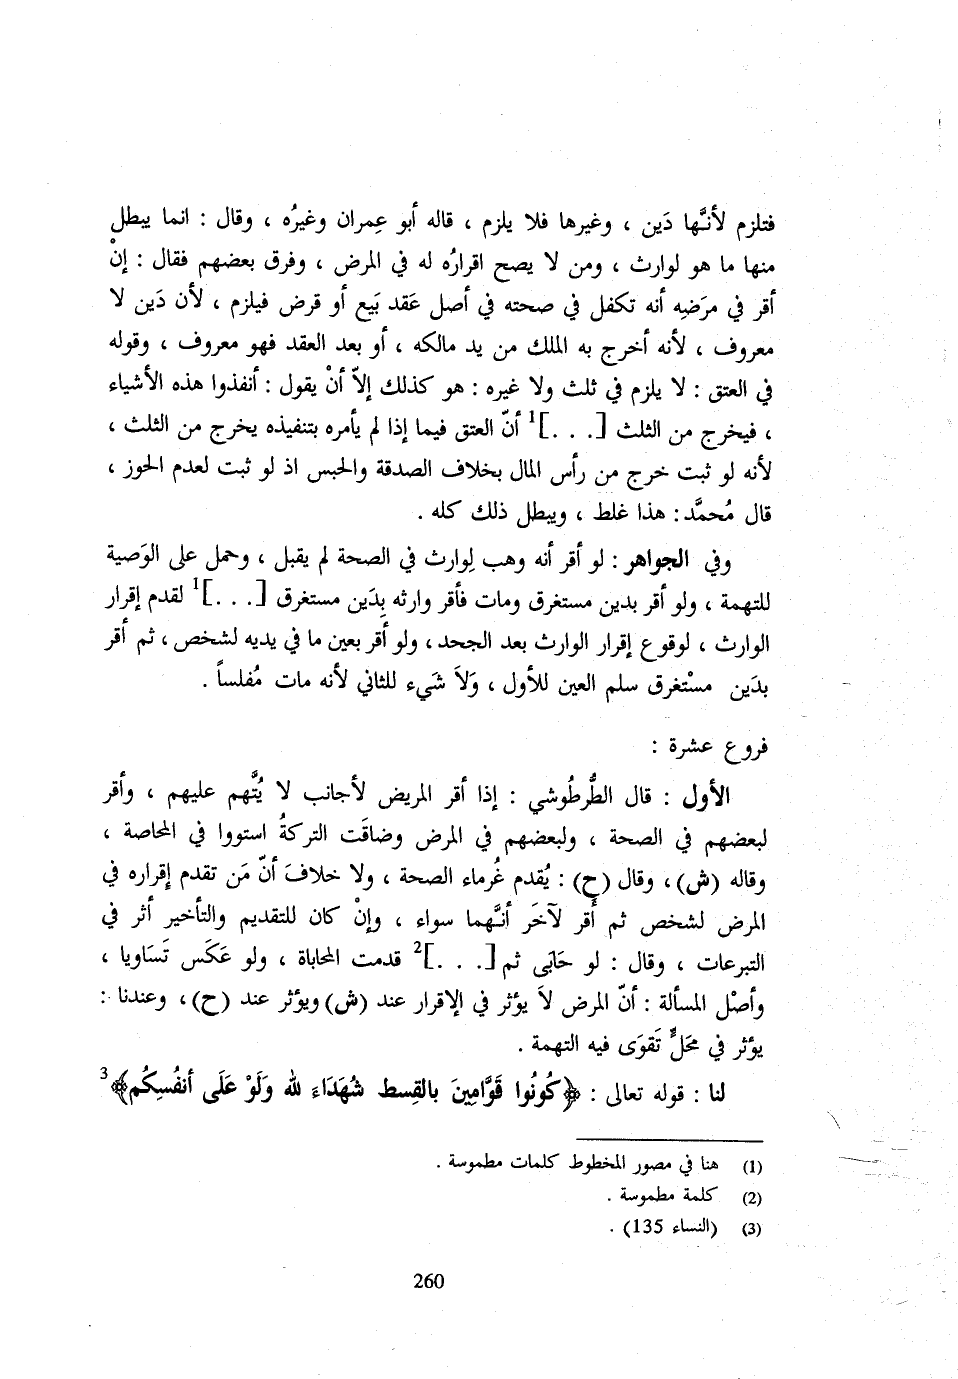 فتلزم لأنَّها دَين ، وغيرها فلا يلزم ، قاله أبو عِمران وغيرُه ، وقال : انما يبطل
منها ما هو لوارث ، ومن لا يصح اقرارُه له في المرض ، وفرق بعضهم فقال : إنْ
أقر في مرَضِه أنه تكفل في صحته في أصل عَقد بَيع أو قرض فيلزم ، لأن دَين لا
معروف ، لأنه أخرج به الملك من يد مالكه ، أو بعد العقد فهو معروف ، وقوله
في العتق : لا يلزم في ثلث ولا غيره : هو كذلك إلاّ أنْ يقول : أنفذوا هذه الأشياء
، فيخرج من الثلث [. . .]1 أنّ العتق فيما إذا لم يأمره بتنفيذه يخرج من الثلث ،
لأنه لو ثبت خرج من رأس المال بخلاف الصدقة والحبس اذ لو ثبت لعدم الحوز ،
قال مُحمَّد : هذا غلط ، ويبطل ذلك كله .
وفي الجواهر : لو أقر أنه وهب لِوارث في الصحة لم يقبل ، وحمل على الوَصية
للتهمة ، ولو أقر بدين مستغرق ومات فأقر وارثه بِدَين مستغرق [. . .]1 لقدم إقرار
الوارث ، لوقوع إقرار الوارث بعد الجحد ، ولو أقر بعين ما في يديه لشخص ، ثم أقر
بدَين مسْتغرق سلم العين للأول ، وَلاَ شَيء للثاني لأنه مات مُفلساً .
فروع عشرة :
الأول : قال الطُّرطُوشي : إذا أقر المريض لأجانب لا يُتَّهم عليهم ، وأقر
لبعضهم في الصحة ، ولبعضهم في المرض وضاقَت التركةُ استووا في المحاصة ،
وقاله (ش) ، وقال (ح) : يُقدم غُرماء الصحة ، ولا خلافَ أنّ مَن تقدم إقراره في
المرض لشخص ثم أَقر لآخَر أنَّهما سواء ، وإنْ كان للتقديم والتأخير أثر في
التبرعات ، وقال : لو حَابَى ثم [. . .]2 قدمت المحاباة ، ولو عَكَس تَسَاويا ،
وأصْل المسألة : أنّ المرض لاَ يؤثر في الإقرار عند (ش) ويؤثر عند (ح) ، وعندنا :
يؤثر في مَحَلٍّ تَقوَى فيه التهمة .
لنا : قوله تعالى : ﴿كُونُوا قَوَّامِينَ بالقِسط شُهَدَاءَ لله وَلَوْ عَلَى أنفُسِكُم﴾3
(1) هنا في مصور المخطوط كلمات مطموسة .
(2) كلمة مطموسة .
(3) (النساء 135) .
260